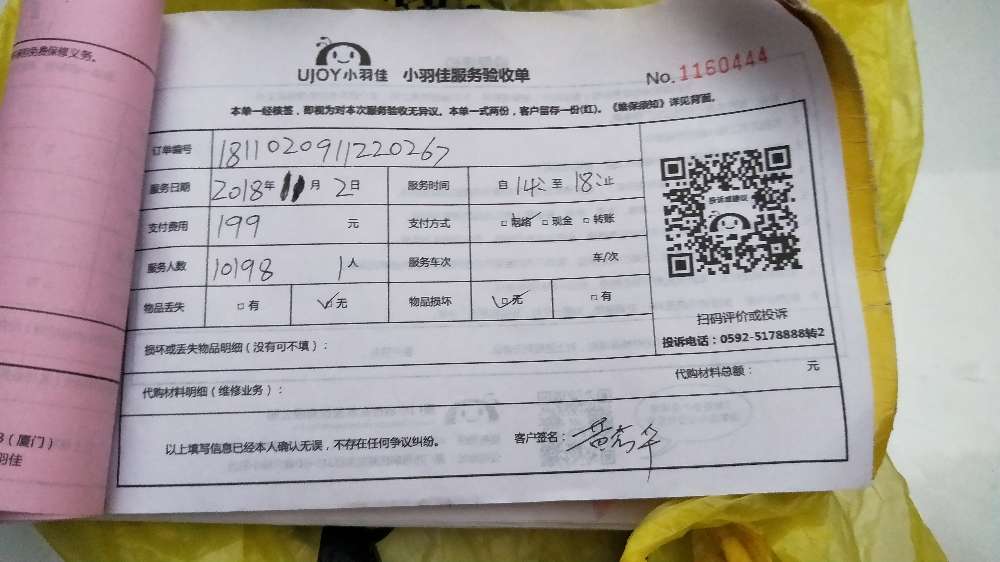 免费保修义务。
UJOY小羽佳 小羽佳服务验收单
No. 1160444
本单一经核签，即视为对本次服务验收无异议。本单一式两份，客户留存一份(红)。《维保须知》详见背面。
订单编号 1811020911220267
服务日期 2018年 11月 2日 服务时间 自 14 至 18 止
支付费用 199 元 支付方式 □ 网络 □ 现金 □ 转账
服务人数 10198 1人 服务车次 车/次
物品丢失 □ 有 □ 无 物品损坏 □ 无 □ 有
投诉或建议
扫码评价或投诉
投诉电话：0592-5178888转2
损坏或丢失物品明细（没有可不填）：
代购材料明细（维修业务）： 代购材料总额： 元
以上填写信息已经本人确认无误，不存在任何争议纠纷。 客户签名：
（厦门）
羽佳